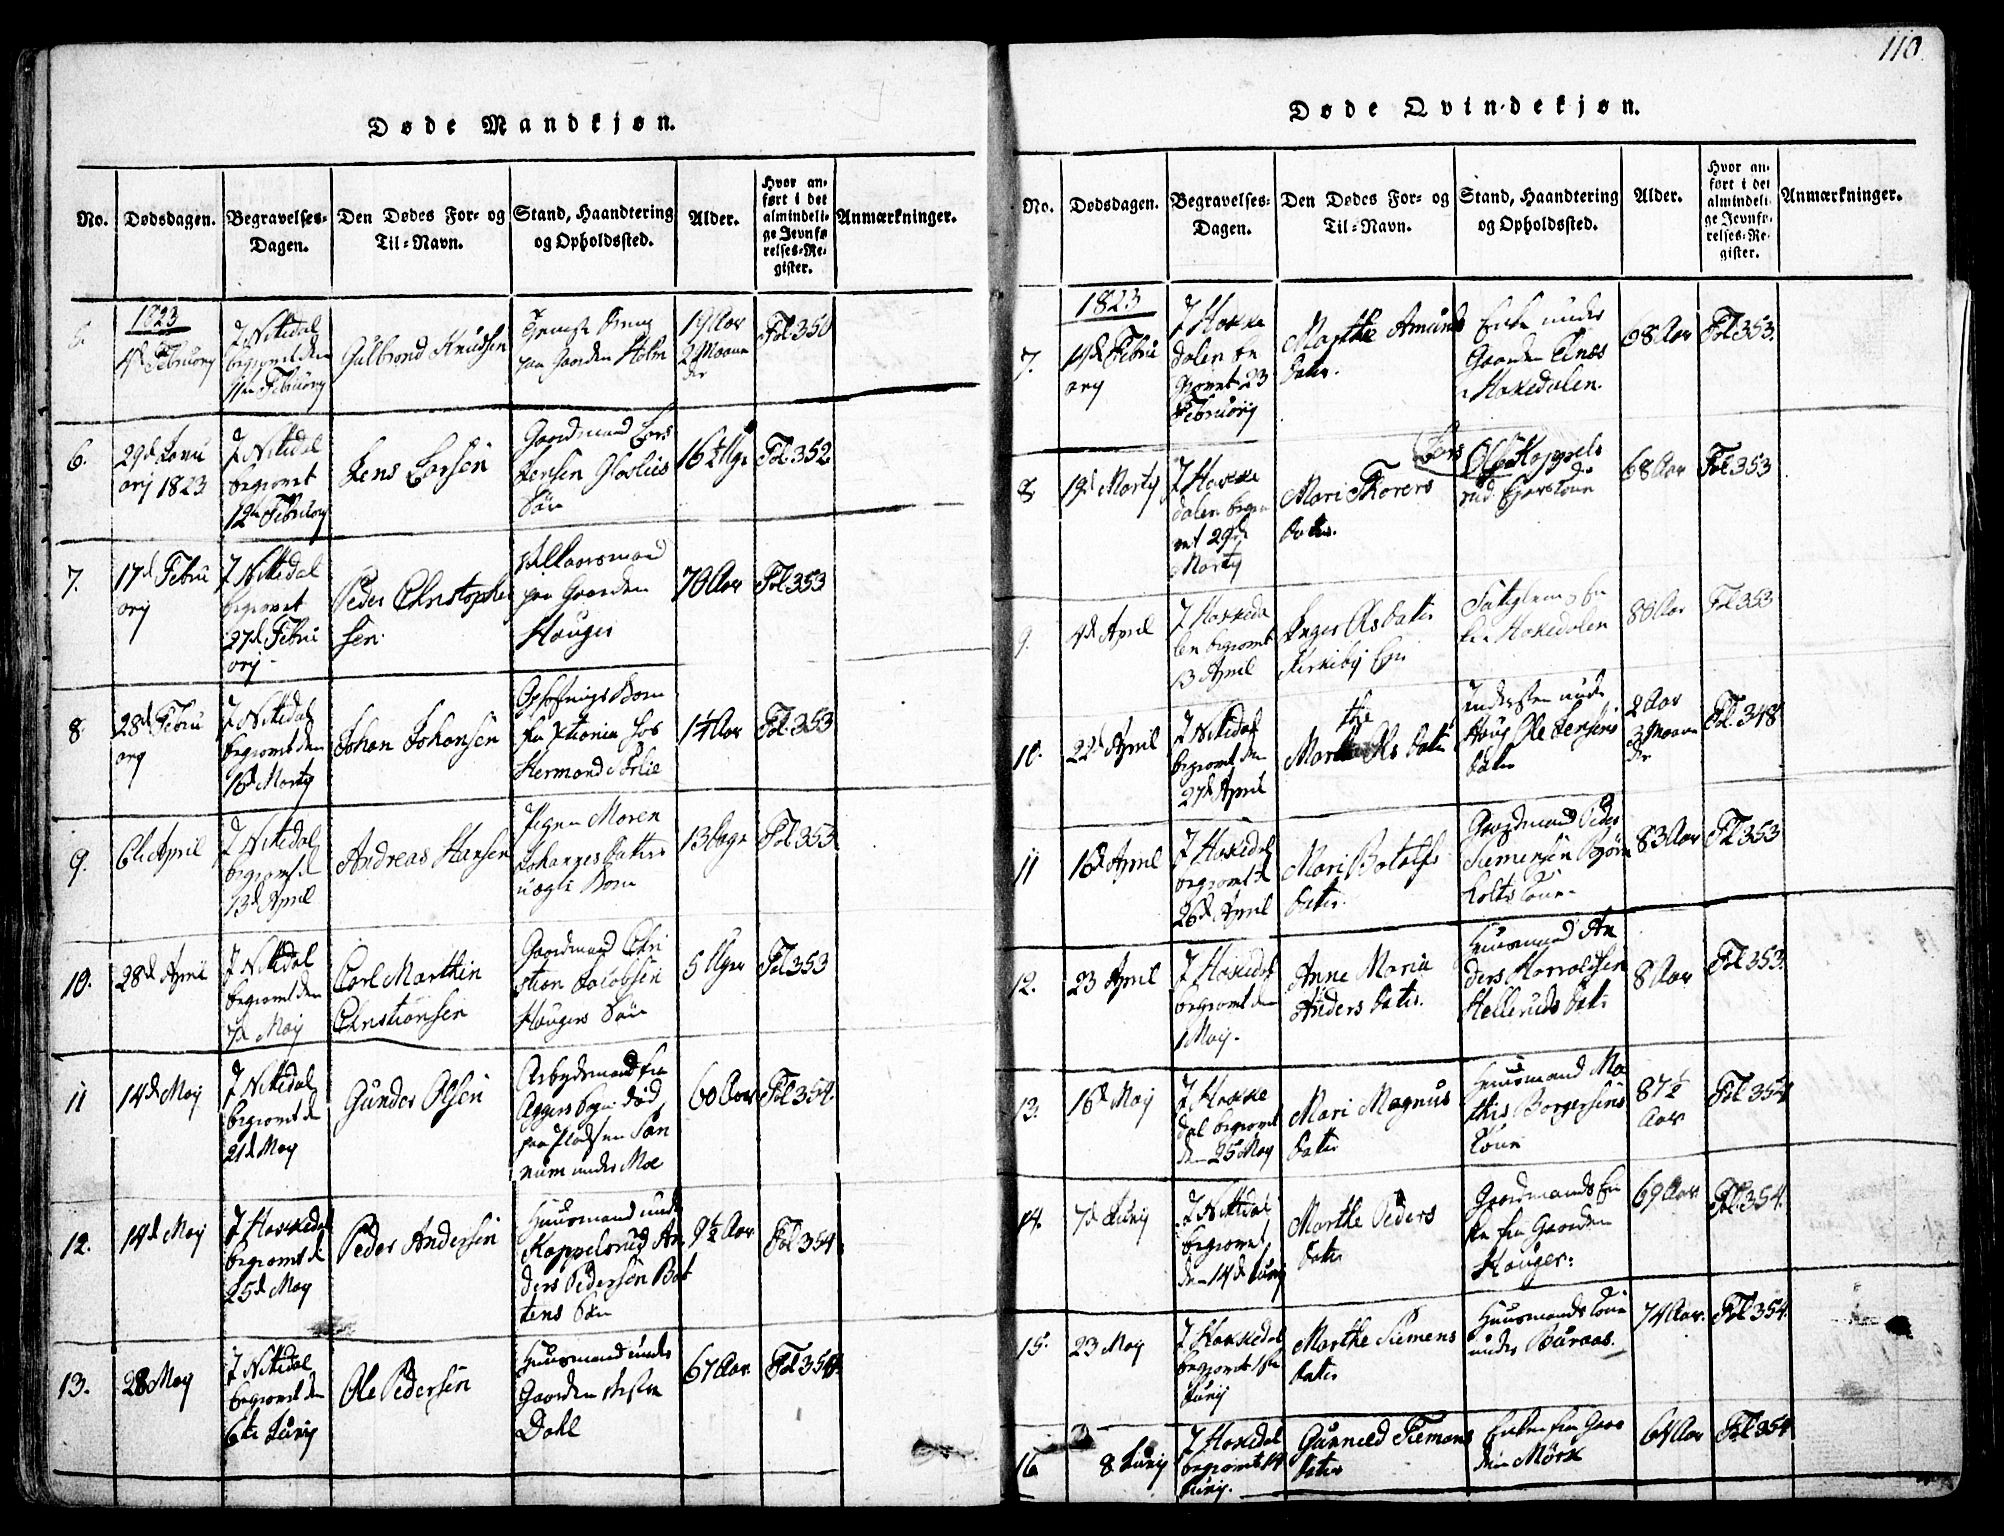 110.
Døde Mandkjøn.
No.
Dødsdagen.
Begravelses-
Dagen.
Den Dødes For- og
Til-Navn.
Stand, Haandtering
og Opholdssted.
Alder.
Hvor an-
ført i det
almindeli-
ge Jevnfø-
relses-Re-
gister.
Anmærkninger.
5.
1823
4d Februarij
I Nitedal
begravet den
11te Februarij
Gulbrand Knudsen
paa Gaarden Holm
19 Aar
2 Maane
der
Fol. 350
6.
29d Janu
arij 1823
I Nitedal
begravet
12te Februarij
Jens Larsen
Gaardmand Lars
Jensen
Søn
16½ Uge
Fol. 352
7.
17d Febru
arij
I Nitedal
begravet
27d Febru
arij
Peder Christophe
sen
Vilkaarsmand
paa Gaarden
Hauger
70 Aar
Fol. 353
8
28d Febru
arij
I Nitedal
begravet den
16d Martij
Johan Johansen
Opfostrings Barn
fra Xtiania hos
Herman
1¼ Aar
Fol. 353
9.
6te April
I Nitedal
begravet d
13d April
Andreas Hansen
Pigen Maren
Johannes Datters
uægte Barn
13 Dage
Fol. 353
10.
28d April
I Nitedal
begravet den
7d Maij
Carl Marthin
Christiansen
Gaardmand Chri
stian Jacobsen
Haugers Søn
5 Uger
Fol. 353
11
14d Maij
I Nitedal
begravet d
21d Maij
Gunder Olsen
Arbeydsmand fra
Aggers Sogn død
paa Pladsen San
rum under Moe
60 Aar
Fol. 354.
12.
14d Maij
I Hakkedal
begravet d
25d Maij
Peder Andersen
Huusmand under
Kappelsrud An
ders Pedersen Bak
kens Søn
9½ Aar
Fol. 354.
13.
28 Maij
I Nitedal
begravet den
6te Junij
Ole Pedersen
Huusmand under
Gaarden Vestre
Dahl
67 Aar
Fol. 354
Døde Qvindekjøn.
No.
Dødsdagen.
Begravelses-
Dagen.
Den Dødes For- og
Til-Navn.
Stand, Haandtering
og Opholdssted.
Alder.
Hvor an-
ført i det
almindeli-
ge Jevnfø-
relses-Re-
gister.
Anmærkninger.
7.
1823
14d Febru
arij
I Hakke
dalen be
gravet 23
Februarij
Marthe Amunds
Datter.
Enke under
Gaarden Elnæs
i Hakedalen.
68 Aar
Fol. 353.
8
19d Martij
I Hakke
dalen begra
vet 29d
Martij
Mari Thorers
Datter.
Lars
Kappels
rud
68 Aar
Fol. 353
9.
4d April
I Hakeda
len begravet
13 April
Inger Els Datter
Kirkeby Eye
Fattiglem, En
ke i Hakedalen
80 Aar
Fol. 353
10.
22d April
I Nitedal
begravet den
27d April
the
Marthe Ols Datter
Indersten under
Haug Ole Jensens
Datter
2 Aar
3 Maane
der
Fol. 348
11
16d April
I Hakedal
begravet d
26d April
Mari Botolfs
Datter.
Gaardmand Peder
Siemensen Bjørn
holts Kone.
83 Aar
Fol. 353
12.
23 April
I Hakedal
begravet den
1 Maij.
Anne Maria
Anders Datter.
Huusmand An
ders Harraldsen
Hellerud Datter
8 Aar
Fol. 353.
13.
16d Maij
I Hakke
dal begravet
den 25 Maij
Mari Magnus
Datter
Huusmand Ma
this Borgersens
Kone
87½
Aar
Fol. 354
14.
7d Junij
I Nitedal
begravet
den 14d Junij
Marthe Peders
Datter
Gaardmands En
ke fra Gaarden
Hauger.
69 Aar
Fol. 354.
15.
23 Maij
I Hakkedal
begravet 1ste
Junij
Marthe Siemens
Datter
Huusmands Kone
under Buraas.
74 Aar.
Fol. 354.
16
8 Junij
I Hakedal
begravet 14
Junij.
Gunnild Siemens
Datter
Enken fra Gaar
den Mørk
64 Aar
Fol. 354